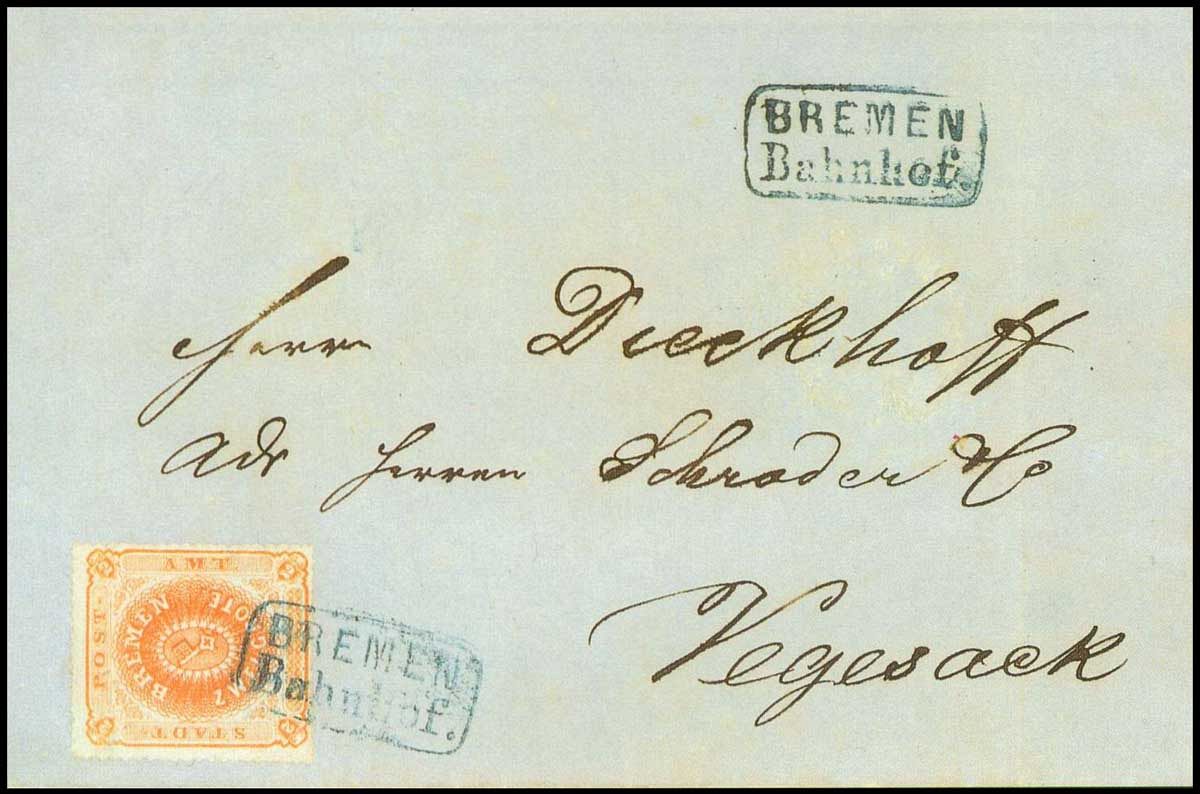 BREMEN
Bahnhof.
Herrn Dieckhoff
Adr Herren Schroder & Co
Vegesack
AMT
POST
BREMEN
GROTE
STADT
BREMEN
Bahnhof.